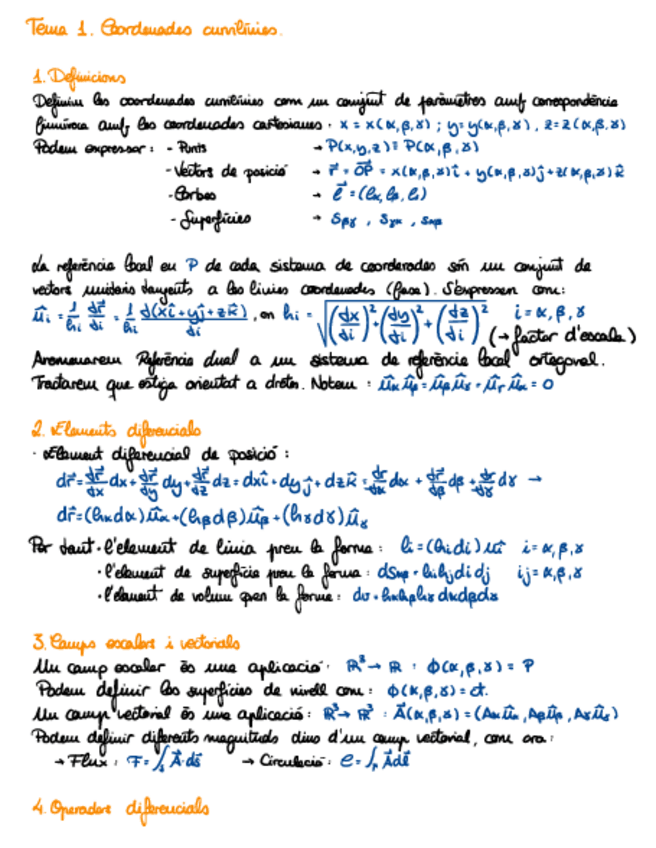 Tema 1. Coordenades curvilínies.
1. Definicions
Definim les coordenades curvilínies com un conjunt de paràmetres amb correspondència
biunívoca amb les coordenades cartesianes. x = x(α,β,γ) ; y = y(α,β,γ) , z = z(α,β,γ)
Podem expressar : - Punts → P(x,y,z) ≡ P(α,β,γ)
- Vectors de posició → r⃗ = OP⃗ = x(α,β,γ)î + y(α,β,γ)ĵ + z(α,β,γ)k̂
- Corbes → l⃗ = (lα, lβ, lγ)
- Superfícies → Sβγ , Sγα , Sαβ
La referència local en P de cada sistema de coordenades són un conjunt de
vectors unitaris tangents a les línies coordenades (base). S'expressen com:
ûi = 1/hi dr⃗/di = 1/hi d(xî+yĵ+zk̂)/di , on hi = √((dx/di)² + (dy/di)² + (dz/di)²) i = α, β, γ
(→ factor d'escala)
Anomenarem Referència dual a un sistema de referència local ortogonal.
Tractarem que estiga orientat a dretes. Notem : ûαûβ = ûβûγ = ûγûα = 0
2. Elements diferencials
· Element diferencial de posició :
dr⃗ = dr⃗/dx dx + dr⃗/dy dy + dr⃗/dz dz = dxî + dyĵ + dzk̂ = dr/dα dα + dr⃗/dβ dβ + dr/dγ dγ →
dr⃗ = (hαdα)ûα + (hβdβ)ûβ + (hγdγ)ûγ
Per tant · l'element de línia pren la forma : li = (hidi)ûi i = α, β, γ
· l'element de superfície pren la forma : dSαβ = hihjdidj ij = α, β, γ
· l'element de volum pren la forma : dv = hαhβhγdαdβdγ
3. Camps escalars i vectorials
Un camp escalar és una aplicació : R³ → R : φ(α,β,γ) = P
Podem definir les superfícies de nivell com : φ(α,β,γ) = ct.
Un camp vectorial és una aplicació : R³ → R³ : A⃗(α,β,γ) = (Aαûα, Aβûβ, Aγûγ)
Podem definir diferents magnituds dins d'un camp vectorial, com ara :
→ Flux : F = ∫s A⃗·ds⃗ → Circulació : C = ∫Γ A⃗dl⃗
4. Operadors diferencials